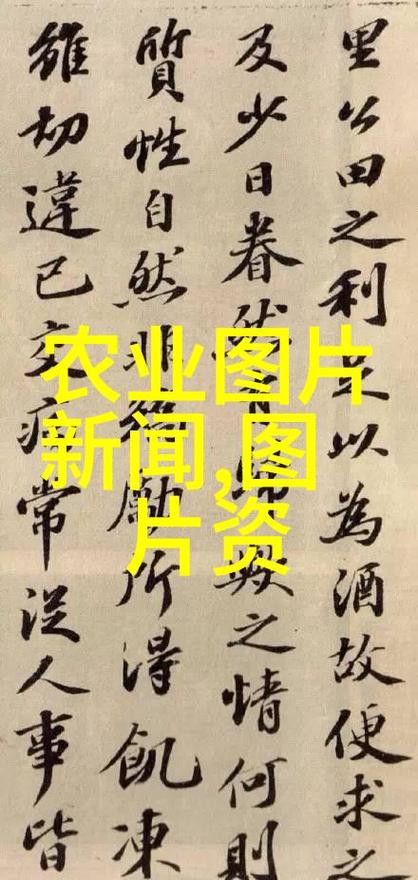 里公田之利足以為酒故便求之
及少日眷然有歟之情何則
質性自然非勵所得飢凍
雖切違己交病常從人事皆
农业图片
新闻,图
片资